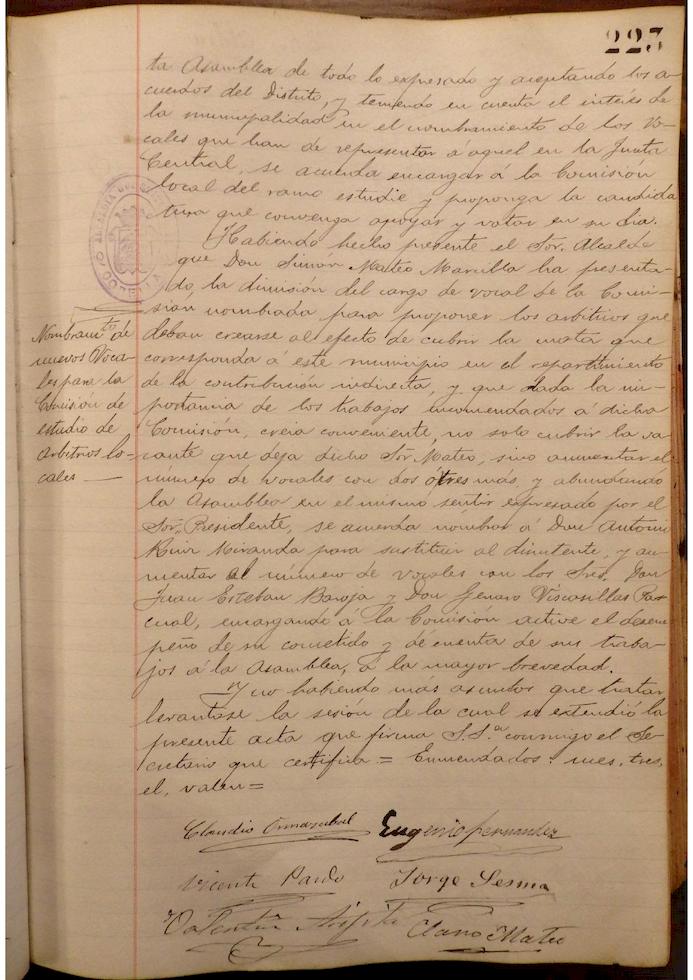 223
ta Asamblea de todo lo expresado y aceptando los a-
cuerdos del Distrito, y teniendo en cuenta el interés de
la municipalidad en el nombramiento de los Vo-
cales que han de representar á aquel en la Junta
Central, se acuerda encargar á la Comisión
local del ramo estudie y proponga la candida
tura que convenga apoyar y votar en su dia.
Habiendo hecho presente el Sor. Alcalde
que Don Simón Mateo Marcilla ha presenta-
do, la dimisión del cargo de vocal de la Comi-
sión nombrada para proponer los arbitrios que
deban crearse al efecto de cubrir la cuota que
corresponda á este municipio en el repartimiento
de la contribución indirecta, y que dada la im-
portancia de los trabajos encomendados á dicha
Comisión, creia conveniente, no solo cubrir la va-
cante que deja dicho Sor. Mateo, sino aumentar el
número de vocales con dos ó tres más, y abundando
la Asamblea en el mismo sentir expresado por el
Sor. Presidente, se acuerda nombrar á Don Antonio
Ruiz Miranda para sustituir al dimitente, y au-
mentar el número de vocales con los Sres. Don
Juan Esteban Baroja y Don Genaro Viscasillas Pas-
cual, encargando á la Comisión active el desem
peño de su cometido y dé cuenta de sus traba-
jos á la Asamblea, á la mayor brevedad.
Y no habiendo más asuntos que tratar
levantase la sesión de la cual se extendió la
presente acta que firma S.S.ª conmigo el Se-
cretario que certifica = Enmendados: mes, tres,
el, valen =
Nombram.to de
nuevos Voca-
les para la
Comisión de
estudio de
arbitrios lo-
cales —
ALCALDIA
CORELLA
Claudio Ormazabal
Eugenio Fernandez
Vicente Pardo
Jorge Sesma
Valentin
Claro Mateo